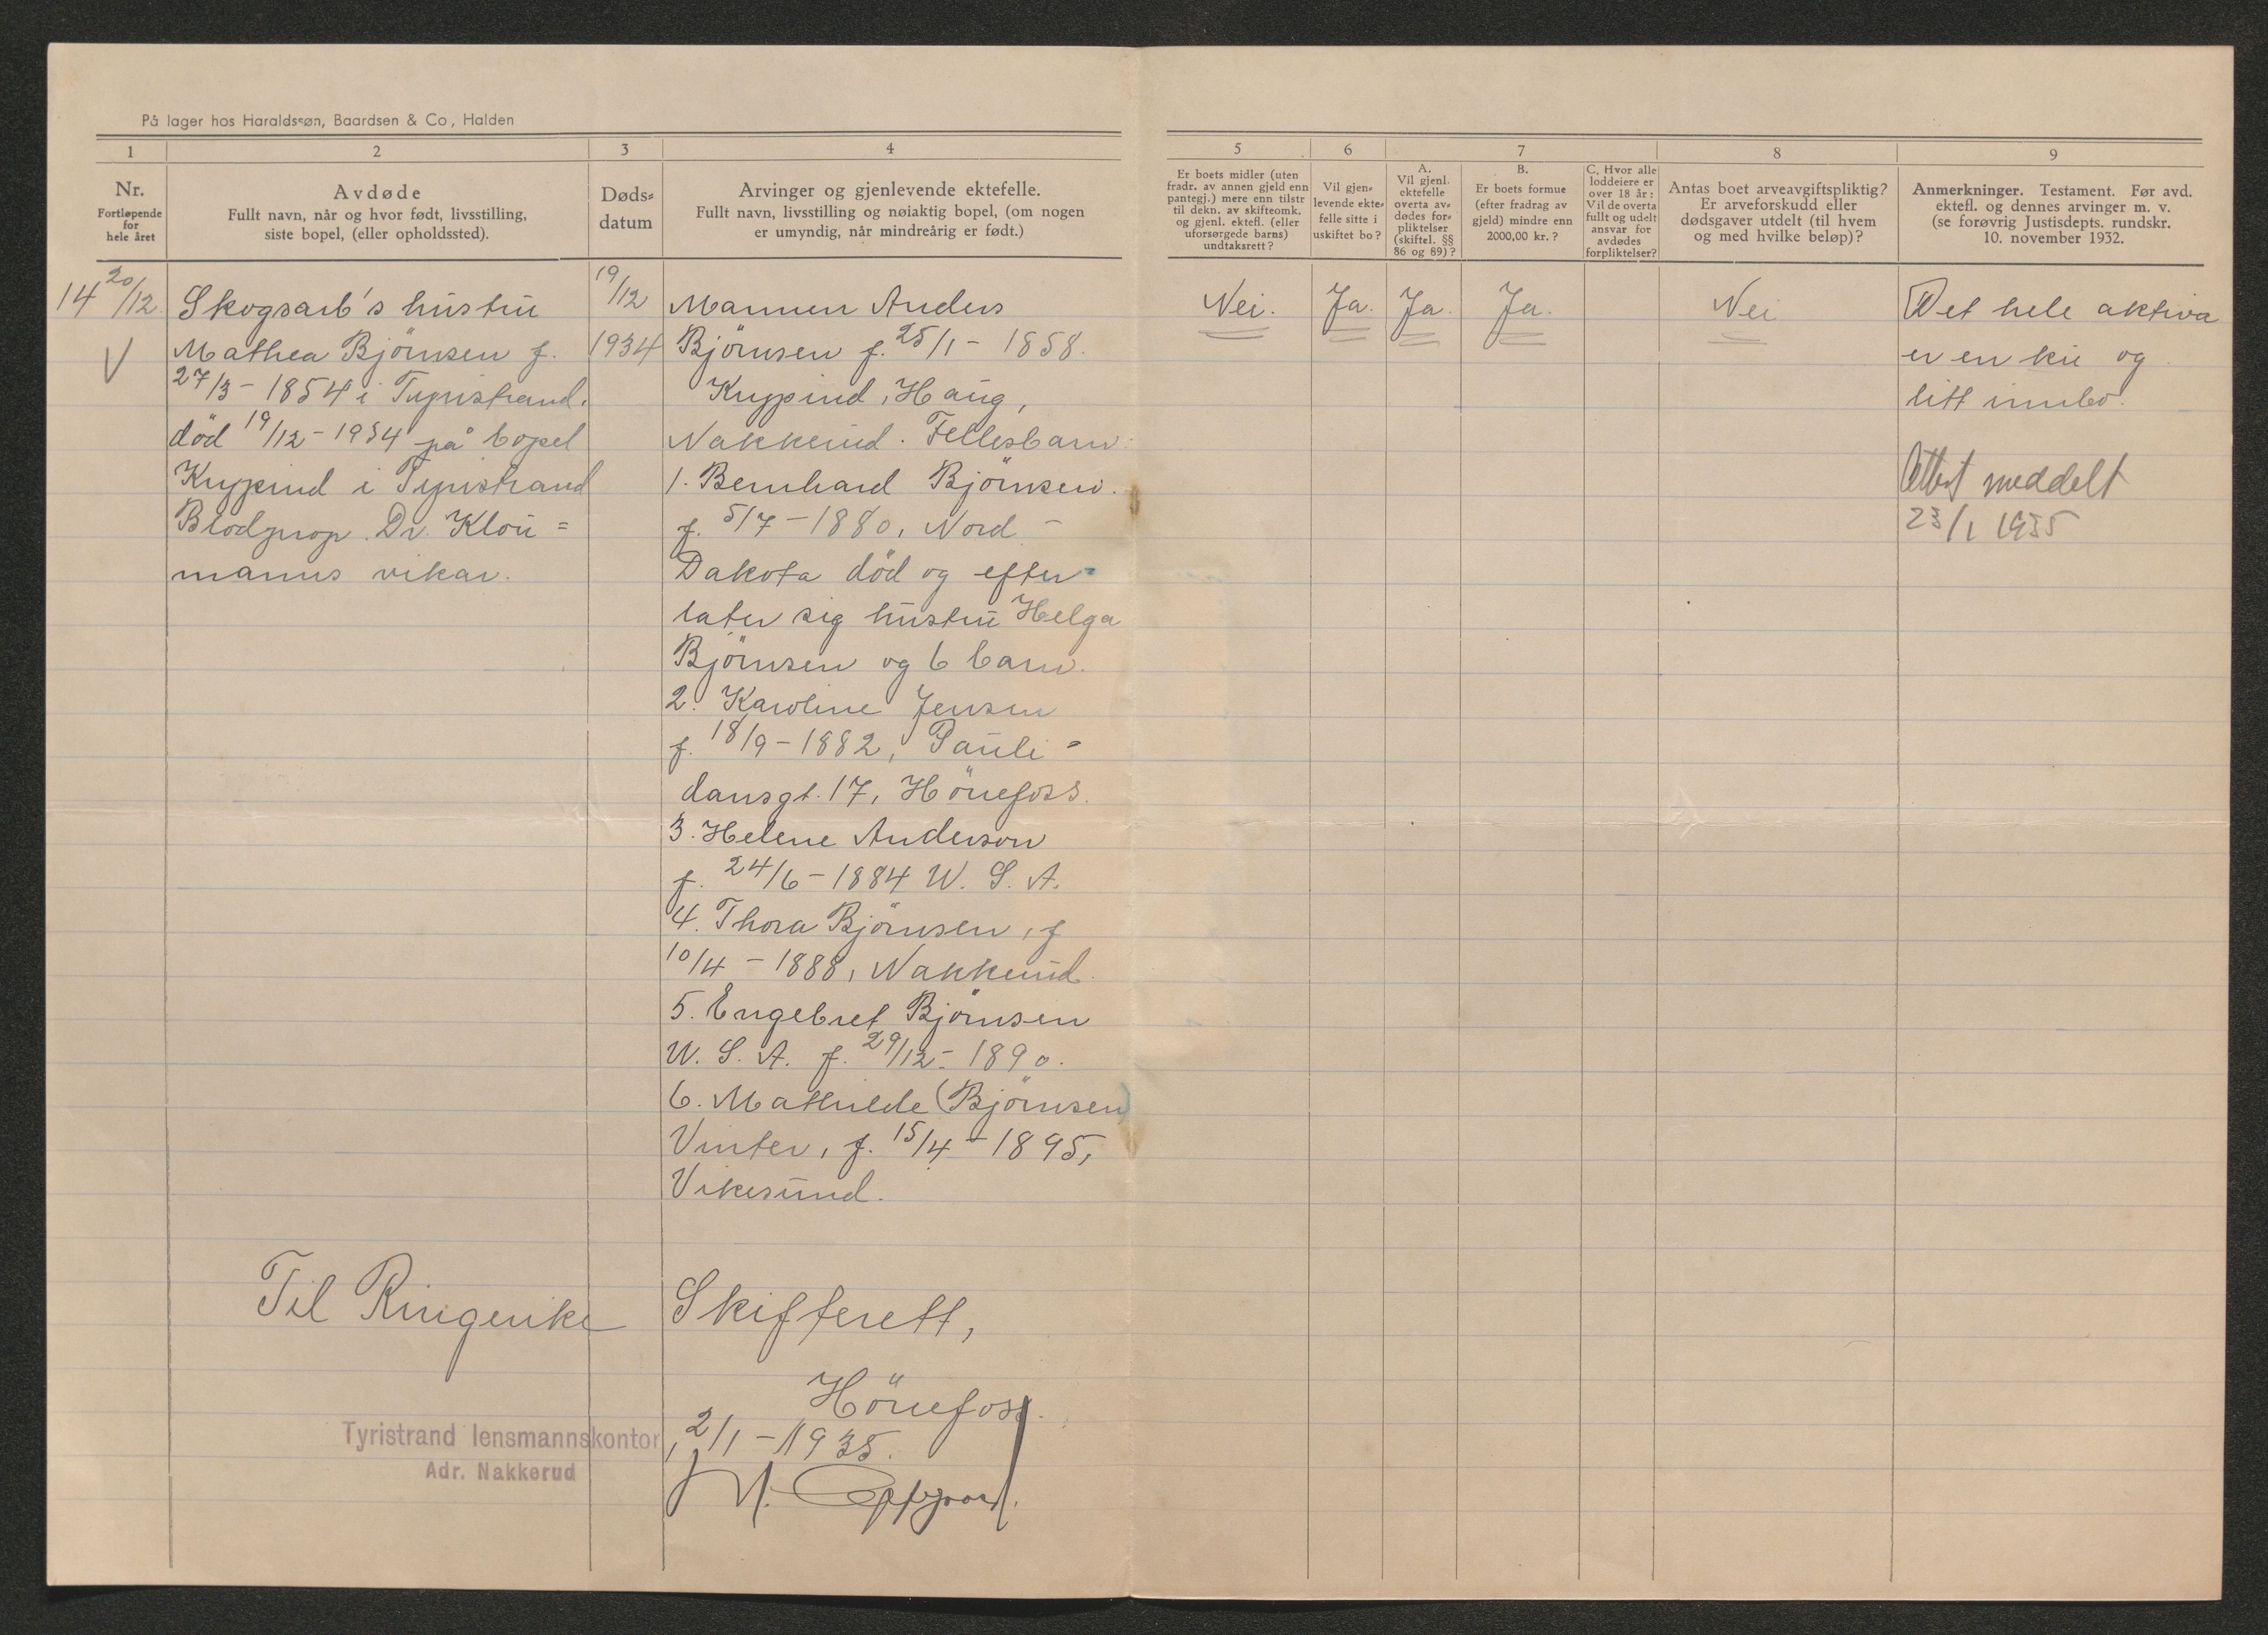 På lager hos Haraldssøn, Baardsen & Co, Halden
1
2
3
4
5
6
7
8
9
Nr.
Fortløpende
for
hele året
Avdøde
Fullt navn, når og hvor født, livsstilling,
siste bopel, (eller opholdssted).
Døds-
datum
Arvinger og gjenlevende ektefelle.
Fullt navn, livsstilling og nøiaktig bopel, (om nogen
er umyndig, når mindreårig er født.)
Er boets midler (uten
fradr. av annen gjeld enn
pantegj.) mere enn tilstr
til dekn. av skifteomk.
og gjenl. ektefl. (eller
uforsørgede barns)
undtaksrett?
Vil gjen-
levende ekte-
felle sitte i
uskiftet bo?
A.
Vil gjenl.
ektefelle
overta av-
dødes for-
pliktelser
(skiftel. §§
86 og 89)?
B.
Er boets formue
(efter fradrag av
gjeld) mindre enn
2000,00 kr.?
C. Hvor alle
loddeiere er
over 18 år:
Vil de overta
fullt og udelt
ansvar for
avdødes
forpliktelser?
Antas boet arveavgiftspliktig?
Er arveforskudd eller
dødsgaver utdelt (til hvem
og med hvilke beløp)?
Anmerkninger. Testament. Før avd.
ektefl. og dennes arvinger m. v.
(se forøvrig Justisdepts. rundskr.
10. november 1932.
14 20/12
Skogsarb's hustru
Mathea Björnsen f.
27/3 - 1854 i Tyristrand,
död 19/12 - 1934 på bopel
Kryperud i Tyristrand
Blodprop. Dr. Klou=
manns vikar.
19/12
1934
Mannen Anders
Björnsen f. 25/1 - 1858.
Kryperud, Haug,
Nakkerud. Fellesbarn:
1. Bernhard Björnsen.
f. 5/7 - 1880, Nord -
Dakota död og efter=
later sig hustru Helga
Björnsen og 6 barn.
2. Karoline Jensen
f. 18/9 - 1882, Pauli=
dansgt. 17, Hönefoss.
3. Helene Anderson
f. 24/6 - 1884 U. S. A.
4. Thora Björnsen, f
10/4 - 1888, Nakkerud.
5. Engebret Björnsen
U. S. A. f. 29/12 - 1890.
6. Mathilde (Björnsen)
Vinter, f. 15/4 - 1895,
Vikesund.
Nei.
Ja.
Ja.
Ja.
Nei
Det hele aktiva
er en ku og
litt innbo.
Attest meddelt
23/1 1935
Til Ringerike Skifterett,
Hönefoss.
Tyristrand lensmannskontor, 2/1 - 1935.
Adr. Nakkerud